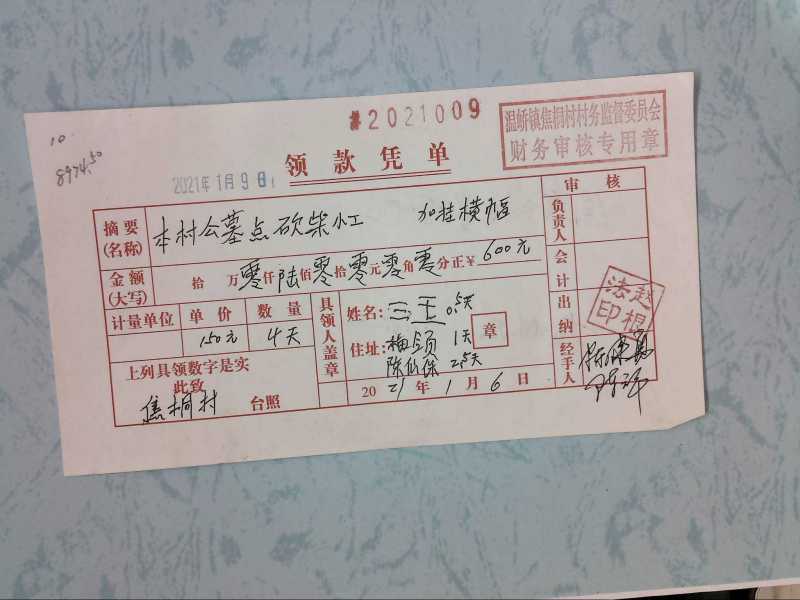 #2021009
温峤镇焦桐村村务监督委员会
财务审核专用章
10.
8974.50
领款凭单
2021年1月9日
摘要(名称) 本村公墓点砍柴小工 加挂横幅
审核
负责人
会计
出纳
经手人
金额(大写) 拾万零仟陆佰零拾零元零角零分正¥600元
计量单位 单价 数量
150元 4天
上列具领数字是实
此致
焦桐村 台照
具领人盖章
姓名: 三王 0.5天
住址: 梅颂 1天
陈仙保 2.5天
章
2021年1月6日
赵根法印